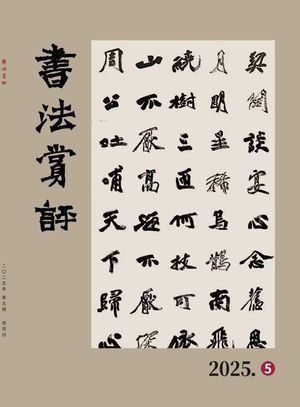 書法賞評
書法賞評
契闊談宴心念舊恩
月明星稀烏鵲南飛
繞樹三匝何枝可依
山不厭高海不厭深
周公吐哺天下歸心
二〇二五年 第五期
2025.5